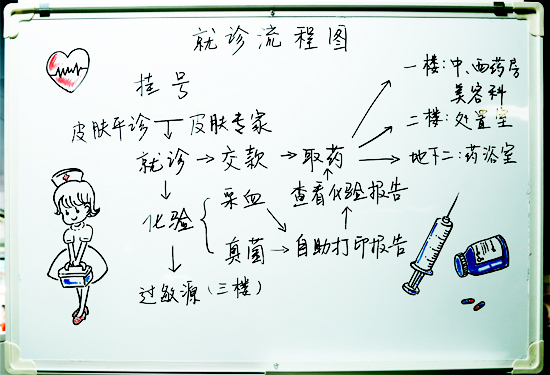 就诊流程图
挂号
皮肤平诊 皮肤专家
就诊→交款→取药
一楼:中、西药房
美容科
二楼:处置室
地下二:药浴室
化验
采血
真菌→自助打印报告
查看化验报告
过敏源(三楼)